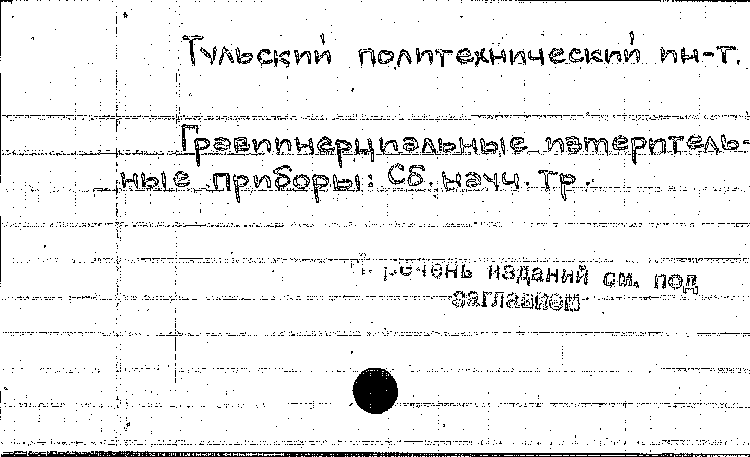 Тульский политехнический ин-т.
Гравиинерциальные измеритель-
ные приборы: Сб. научн. тр.
Перечень изданий см. под
заглавием